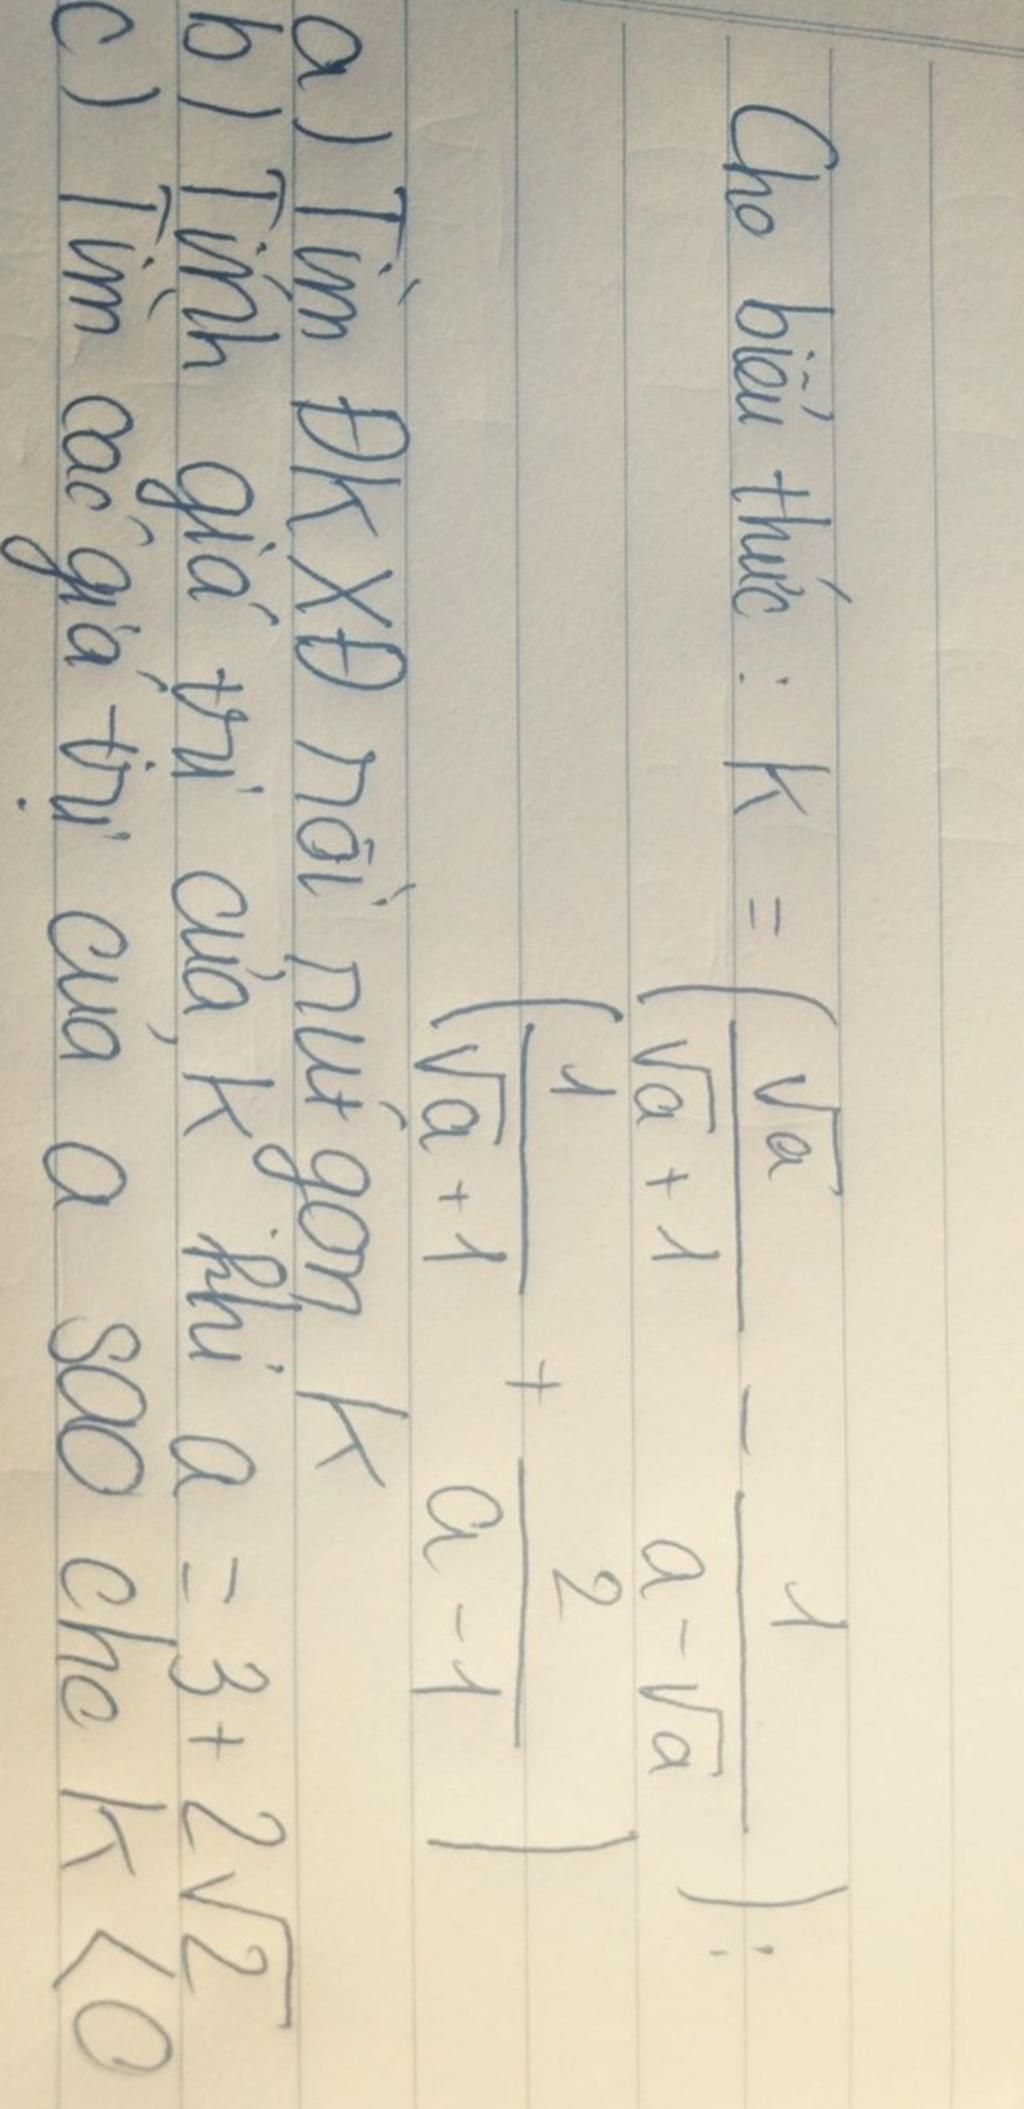 Cho biểu thức : K = ( √a / (√a + 1) - 1 / (a - √a) ) :
( 1 / (√a + 1) + 2 / (a - 1) )
a) Tìm ĐKXĐ rồi rút gọn K
b) Tính giá trị của K khi a = 3 + 2√2
c) Tìm các giá trị của a sao cho K < 0